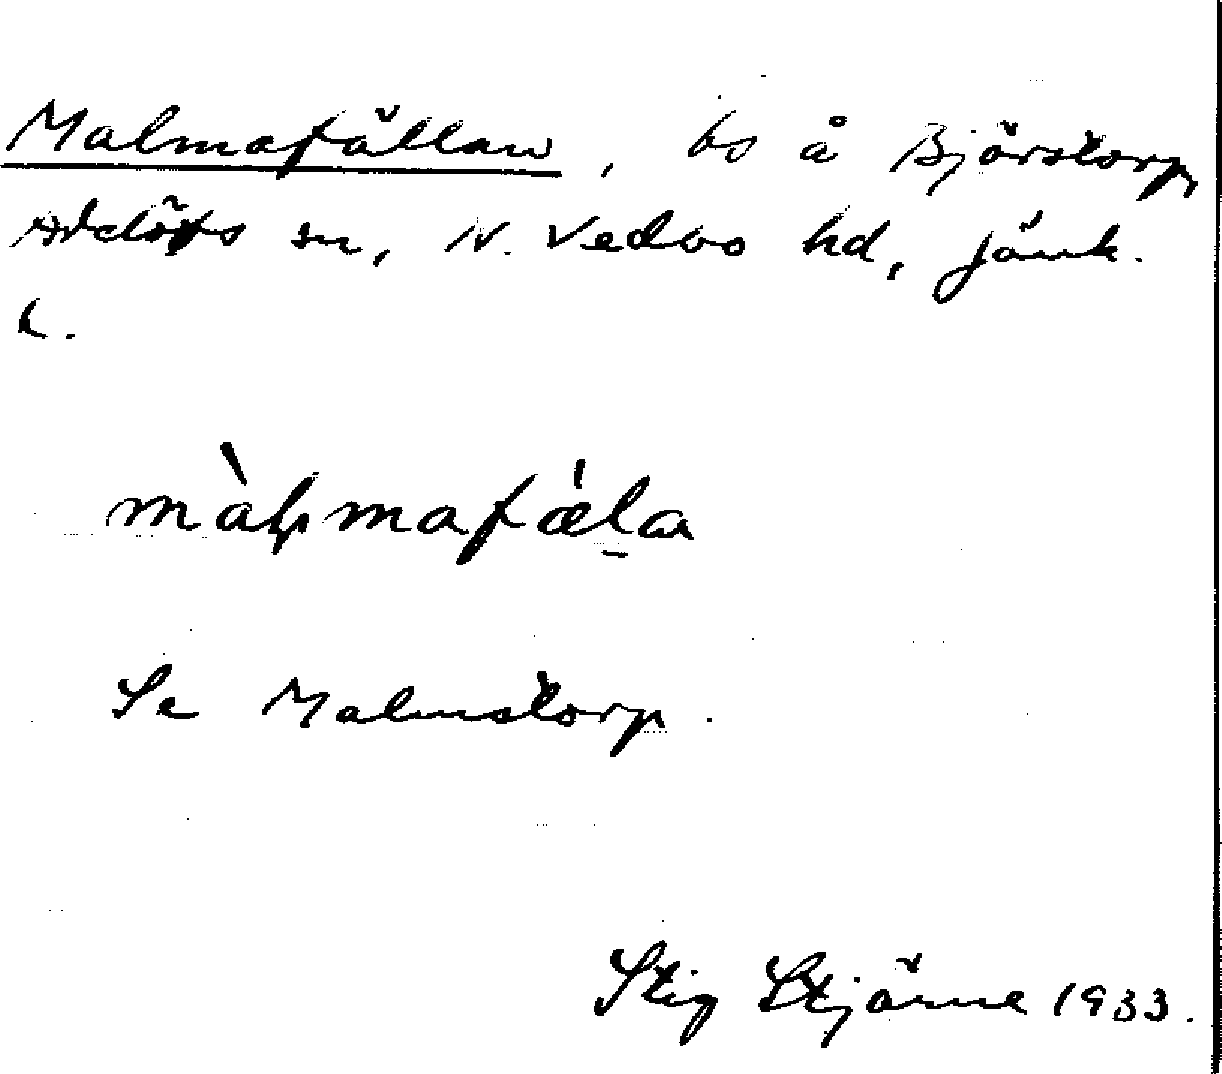 Malmafällan, bs å Björstorp,
Adelövs sn, N. Vedbo hd, Jönk.
l.
màḷmafǽla
Se Malmstorp.
Stig Stjärne 1933.